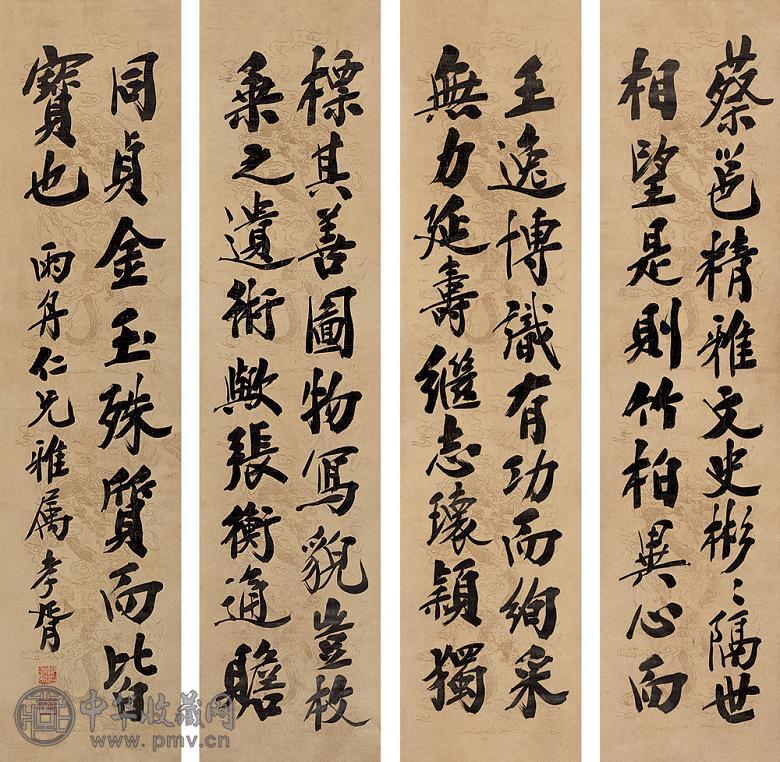 蔡邕精雅文史彬〻隔世
相望是則竹柏異心而
王逸博識有功而絢采
無力延壽繼志瓌穎獨
標其善圖物寫貌豈枚
乘之遺術歟張衡通贍
同貞金玉殊質而皆
寶也 雨丹仁兄雅屬 孝胥
中华收藏网
www.pmv.cn